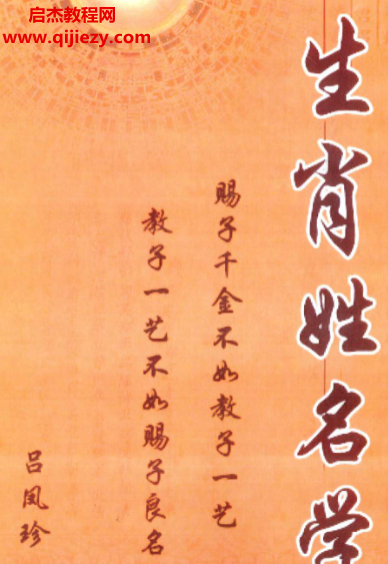 启杰教程网
www.qijiezy.com
生肖姓名学
赐子千金不如教子一艺
教子一艺不如赐子良名
吕凤珍